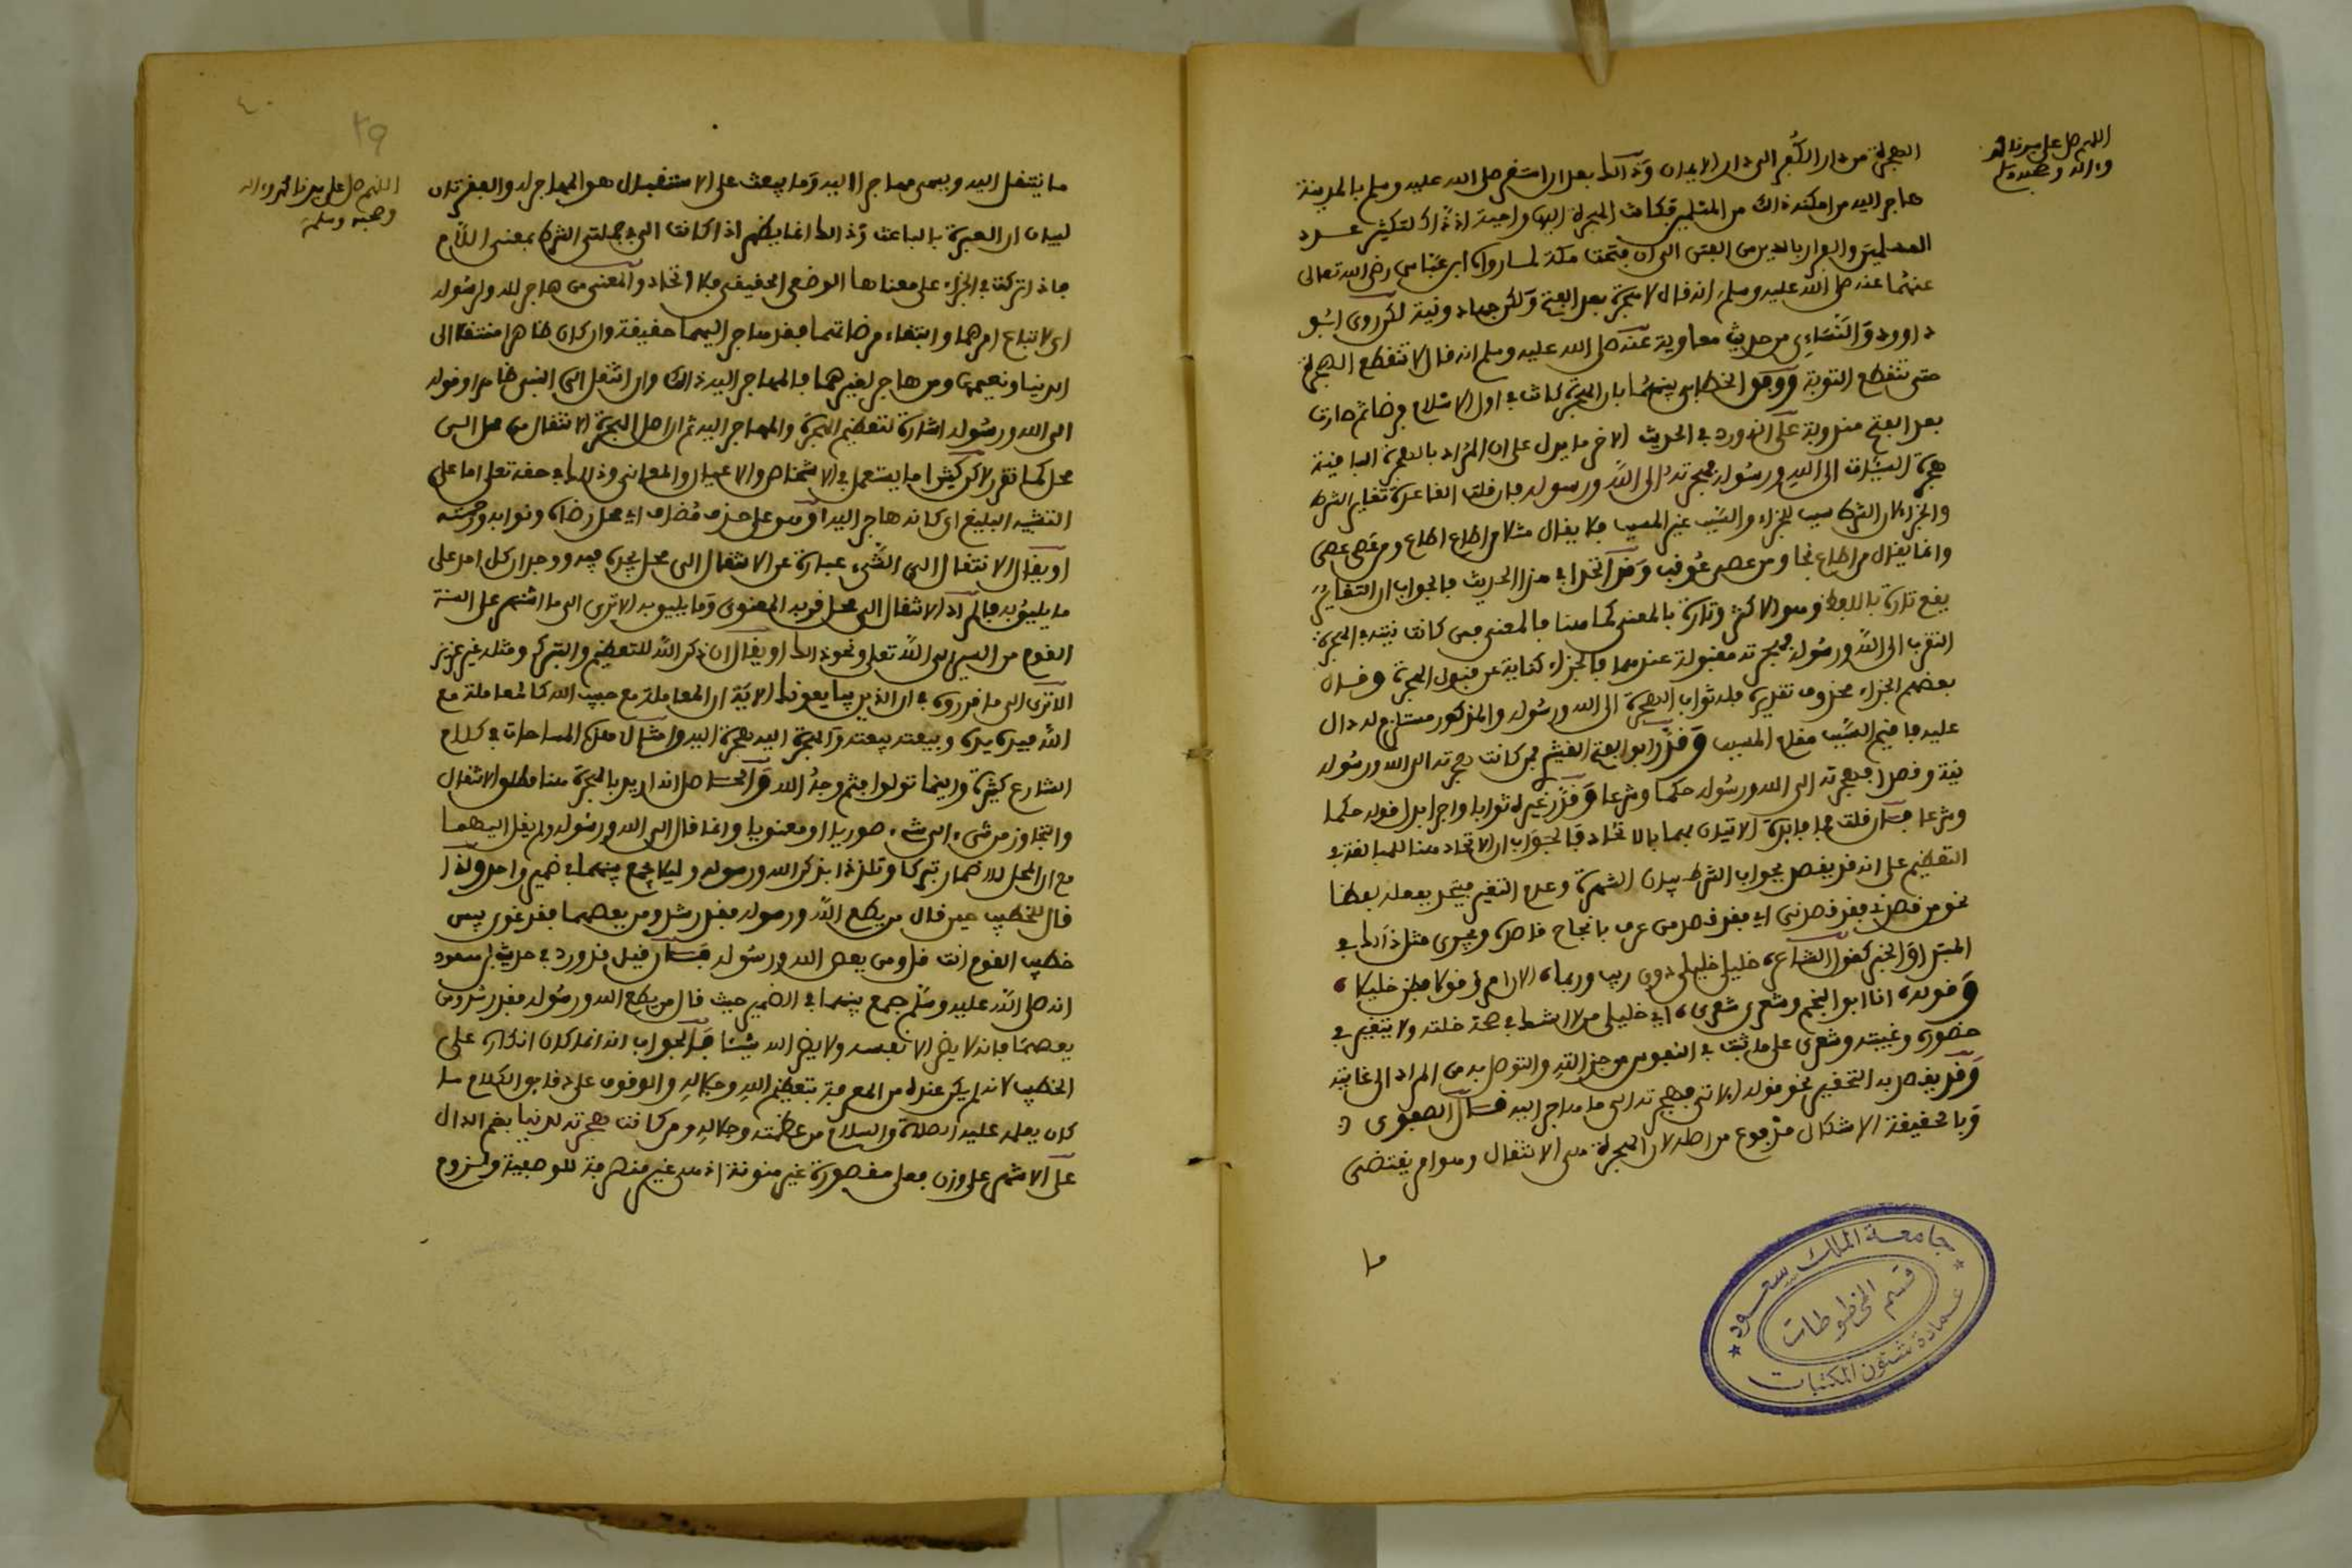 اللهم صل على سيدنا محمد
وءاله وصحبه وسلم
الهجرة من دار الكفر الى دار الايمان وذالك بعد ان استقر صلى الله عليه وسلم بالمدينة
هاجر اليه من امكنه ذالك من المسلمين فكانت الهجرة اليها واجبة اذ ذاك لتكثير عدد
المسلمين والفرار بالدين من الفتن الى ان فتحت مكة لما رواه ابن عباس رضي الله تعالى
عنهما عنه صلى الله عليه وسلم انه قال لا هجرة بعد الفتح ولكن جهاد ونية لكن روى ابو
داوود والنسائي من حديث معاوية عنه صلى الله عليه وسلم انه قال لا تنقطع الهجرة
حتى تنقطع التوبة ووفق الخطابي بينهما بان الهجرة كانت في اول الاسلام فرضا ثم صارت
بعد الفتح مندوبة على انه ورد في الحديث الاخر ما يدل على ان المراد بالهجرة الباقية
هجرة السيئات الى الله ورسوله فهجرته الى الله ورسوله فان قلت القاعدة تغاير الشرط
والجزاء لان الشرط سبب للجزاء والسبب غير المسبب فلا يقال مثلا من اطاع اطاع ومن عصى عصى
وانما يقال من اطاع نجا ومن عصى عوقب وقد اتحدا في هذا الحديث فالجواب ان التغاير
يقع تارة باللفظ وهو الاكثر وتارة بالمعنى كما هنا فالمعنى فمن كانت نيته في الهجرة
التقرب الى الله ورسوله فهجرته مقبولة عندهما فالجزاء كناية عن قبول الهجرة وقال
بعضهم الجزاء محذوف تقديره فله ثواب الهجرة الى الله ورسوله والمذكور مستلزم له دال
عليه فاقيم السبب مقام المسبب وقدر ابو الفتح القشيري فمن كانت هجرته الى الله ورسوله
نية وقصدا فهجرته الى الله ورسوله حكما وشرعا وقدر غيره ثوابا واجرا بدل قوله حكما
وشرعا فان قلت فما فائدة الاتيان بهما بالاتحاد فالجواب ان الاتحاد هنا للمبالغة في
التعظيم على انه قد يقصد بجواب الشرط بيان الشهرة وعدم التغير فيتحد بفعله لفظا
نحو من قصدني فقد قصدني اي فقد قصد من عرف بانجاح قاصده ويجرى مثل ذالك في
المبتدا والخبر كقول الشاعر خليلي خليلي دون ريب وربما الان امرؤ قولا فظن خليلا
وقوله انا ابو النجم وشعري شعري اي خليلي من لا اشك في صحة خلته ولا يتغير في
حضوره وغيبته وشعري على ما ثبت في النفوس من جزالته والتوصل به من المراد الى غايته
وقد يقصد به التحقير نحو قوله الاتي فهجرته الى ما هاجر اليه قال الصفوي
وبالحقيقة الاشكال مدفوع من اصله لان الهجرة هي الانتقال وهو امر يقتضي
ما
جامعة الملك سعود
قسم المخطوطات
عمادة شئون المكتبات
٤٠
٣٩
اللهم صل على سيدنا محمد وءاله
وصحبه وسلم
ما ينتقل اليه ويسمى مهاجرا اليه وما يبعث على الانتقال هو المهاجر له والفقرتان
لبيان ان العبرة بالباعث وذالك انما يظهر اذا كانت الى في جملتي الشرط بمعنى اللام
فاذا تركت في الجزاء على معناها الوضعي الحقيقي فلا اتحاد والمعنى من هاجر لله ولرسوله
اي لاتباع امرهما وابتغاء مرضاتهما فقد هاجر اليهما حقيقة وان كان ظاهرا منتقلا الى
الدنيا ونعيمها ومن هاجر لغيرهما فالمهاجر اليه ذالك وان انتقل الى النبي ظاهرا وقوله
الى الله ورسوله اشارة لتعظيم الهجرة والمهاجر اليه ثم ان اصل الهجرة الانتقال من محل الى
محل كما تقرر لاكن كثيرا ما يستعمل في الاشخاص والاعيان والمعاني وذالك في حقه تعلى اما على
التشبيه البليغ اي كانه هاجر اليه او هو على حذف مضاف اي محل رضاه وثوابه ورحمته
او يقال الانتقال الى الشيء عبارة عن الانتقال الى محل يجده فيه ووجدان كل احد على
ما يليق به فالمراد الانتقال الى محل قربه المعنوي وما يليق به الا ترى الى ما اشتهر على السنة
القوم من السير الى الله تعلى ونحو ذالك او يقال ان ذكر الله للتعظيم والتبرك ومثله غير عزيز
الا ترى الى ما قرروه في ان الذين يبايعونك الاية ان المعاملة مع حبيب الله كالمعاملة مع
الله فيده يده وبيعته بيعته والهجرة اليه هجرة اليه وامثال هذه المسامحات في كلام
الشارع كثيرة واينما تولوا فثم وجه الله والحاصل انه اريد بالهجرة هنا مطلق الانتقال
والتجاوز من شيء الى شيء صوريا او معنويا وانما قال الى الله ورسوله ولم يقل اليهما
مع ان المحل للاضمار تبركا وتلذذا بذكر الله ورسوله وليلا يجمع بينهما في ضمير واحد ولذا
قال للخطيب حين قال من يطع الله ورسوله فقد رشد ومن يعصهما فقد غوى بيس
خطيب القوم انت قل ومن يعص الله ورسوله فان قيل قد ورد في حديث ابن مسعود
انه صلى الله عليه وسلم جمع بينهما في الضمير حيث قال من يطع الله ورسوله فقد رشد ومن
يعصهما فانه لا يضر الا نفسه ولا يضر الله شيئا فالجواب انه انما كان انكاره على
الخطيب لانه لم يكن عنده من المعرفة بتعظيم الله وجلاله والوقوف على دقايق الكلام ما
كان يعلمه عليه الصلاة والسلام من عظمته وجلاله ومن كانت هجرته لدنيا بضم الدال
على الاشهر على وزن فعلى مقصورة غير منونة اذ هي غير منصرفة للوصفية ولزوم